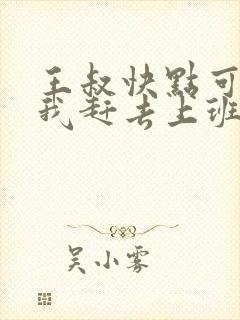 王叔快點可
我赶去上班
吴小雾